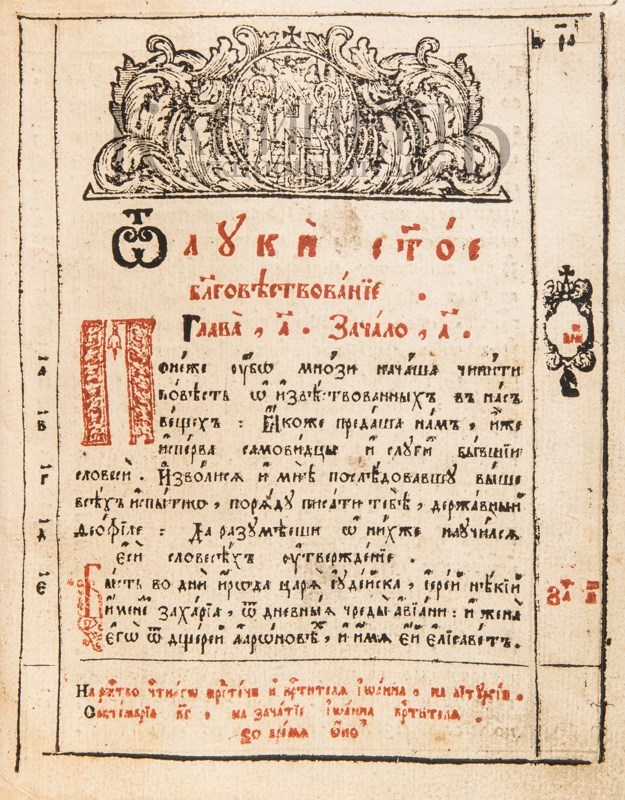 Ѿ лꙋки́ ст҃о́е
бл҃говѣствова́нїе .
Глава̀ , а҃ . Зача́ло , а҃ .
Поне́же ᲂу҆́бѡ мно́зи нача́ша чини́ти
по́вѣсть ѡ҆ и҆звѣ́ствованныхъ въ на́съ
ве́щехъ : Ꙗ҆́коже преда́ша на́мъ , и҆̀же
и҆спе́рва самови́дцы и҆ слꙋги̑ бы́вшїи
словесѝ . И҆зво́лисѧ и҆ мнѣ̀ послѣ́довавшꙋ вы́ше
всѣ̑хъ и҆спы́тнѡ , порѧ́дꙋ писа́ти тебѣ̀ , держа́вный
Ѳео́фїле : Да разꙋмѣ́еши ѡ҆ ни́хже наꙋчи́лсѧ
є҆сѝ словесѣ́хъ ᲂу҆твержде́нїе .
Бы́сть во дни̑ и҆́рѡда царѧ̀ і҆ꙋде́йска , і҆ере́й нѣ́кїй
и҆́менемъ заха́рїа , ѿ дневны́ѧ чреды̀ а҆вїа́ни : и҆ жена̀
є҆гѡ̀ ѿ дще́рей а҆арѡ́новѣхъ , и҆ и҆́мѧ є҆́й є҆лїсаве́тъ .
а
в
г
д
є
за҃
На
и҆ крⷭ҇ти́телѧ і҆ѡа́нна . на лїтꙋргі́и .
Септе́мврїа кг . на зача́тїе і҆ѡа́нна крⷭ҇ти́телѧ .
Во вре́мѧ ѻ҆́но